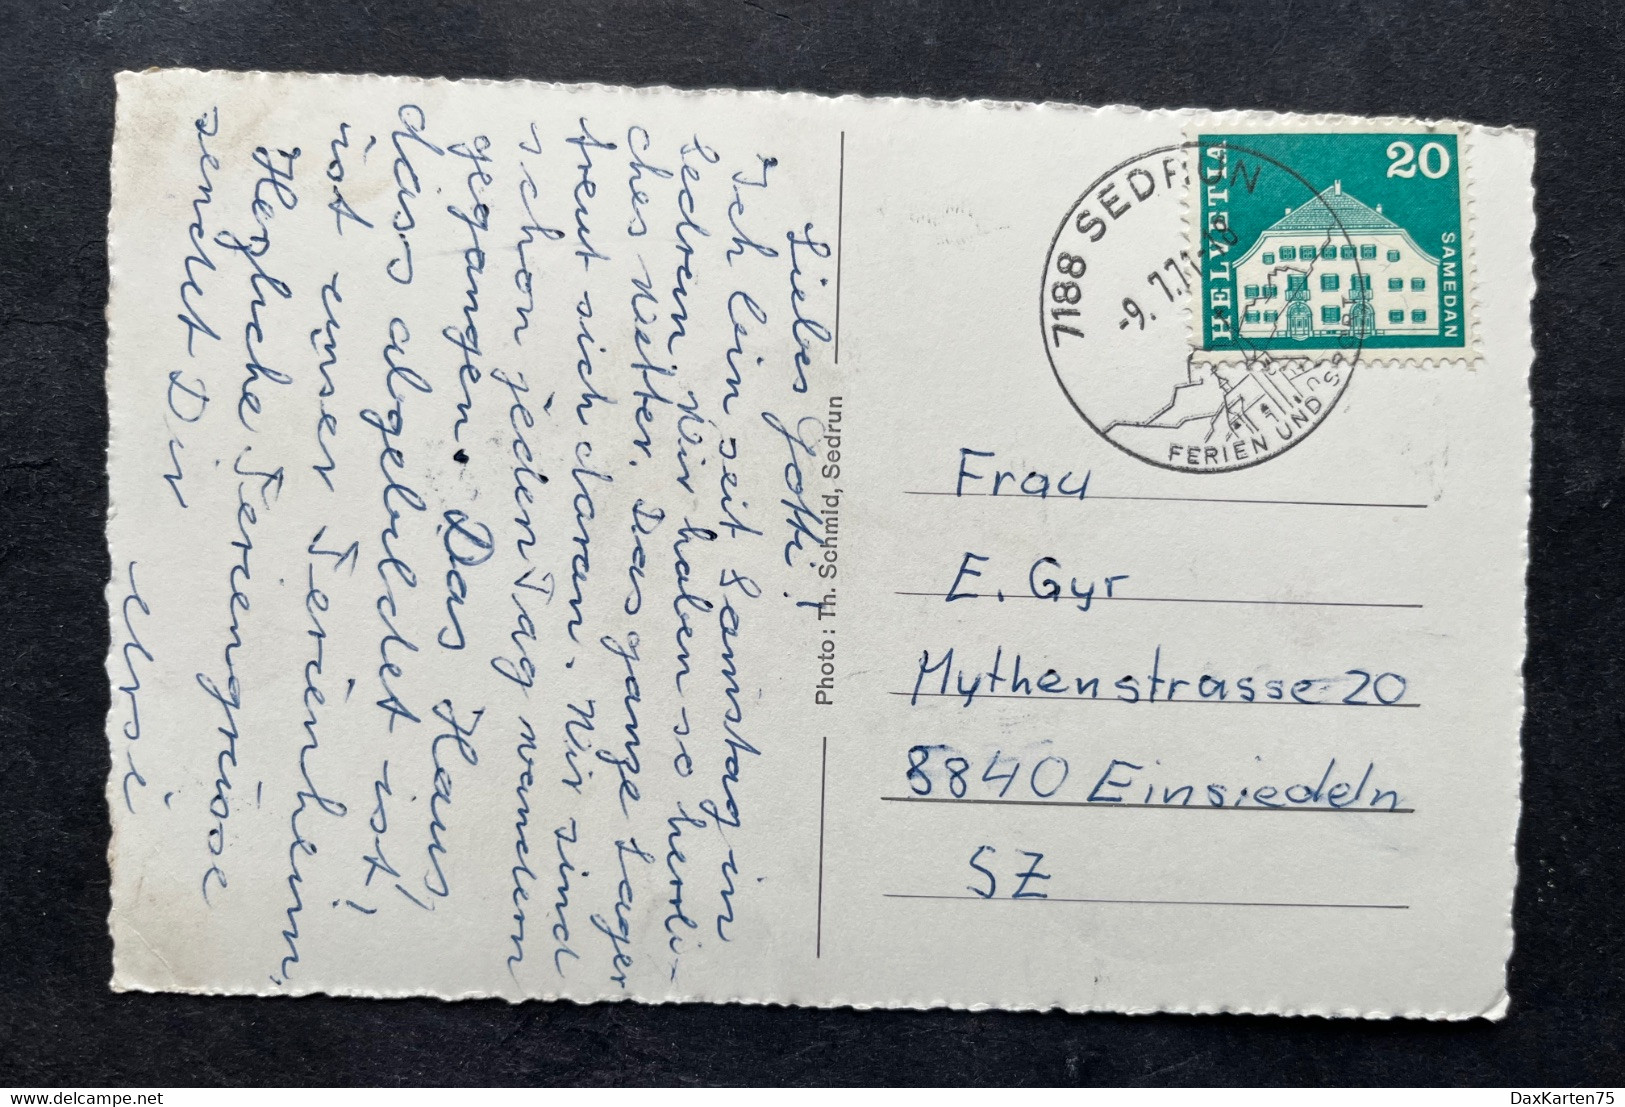 Liebes Gotti!
Ich bin seit Samstag in
Sedrun. Wir haben so herrli-
ches Wetter. Das ganze Lager
freut sich daran. Wir sind
schon jeden Tag wandern
gegangen. Das Haus,
dass abgebildet ist!
ist unser Ferienheim,
Herzliche Feriengrüsse
sendet Dir
Ursi
Photo: Th. Schmid, Sedrun
7188 SEDRUN
-9. 7.71-18
FERIEN UND SPORT
HELVETIA
20
SAMEDAN
Frau
E. Gyr
Mythenstrasse 20
8840 Einsiedeln
SZ
DaxKarten75